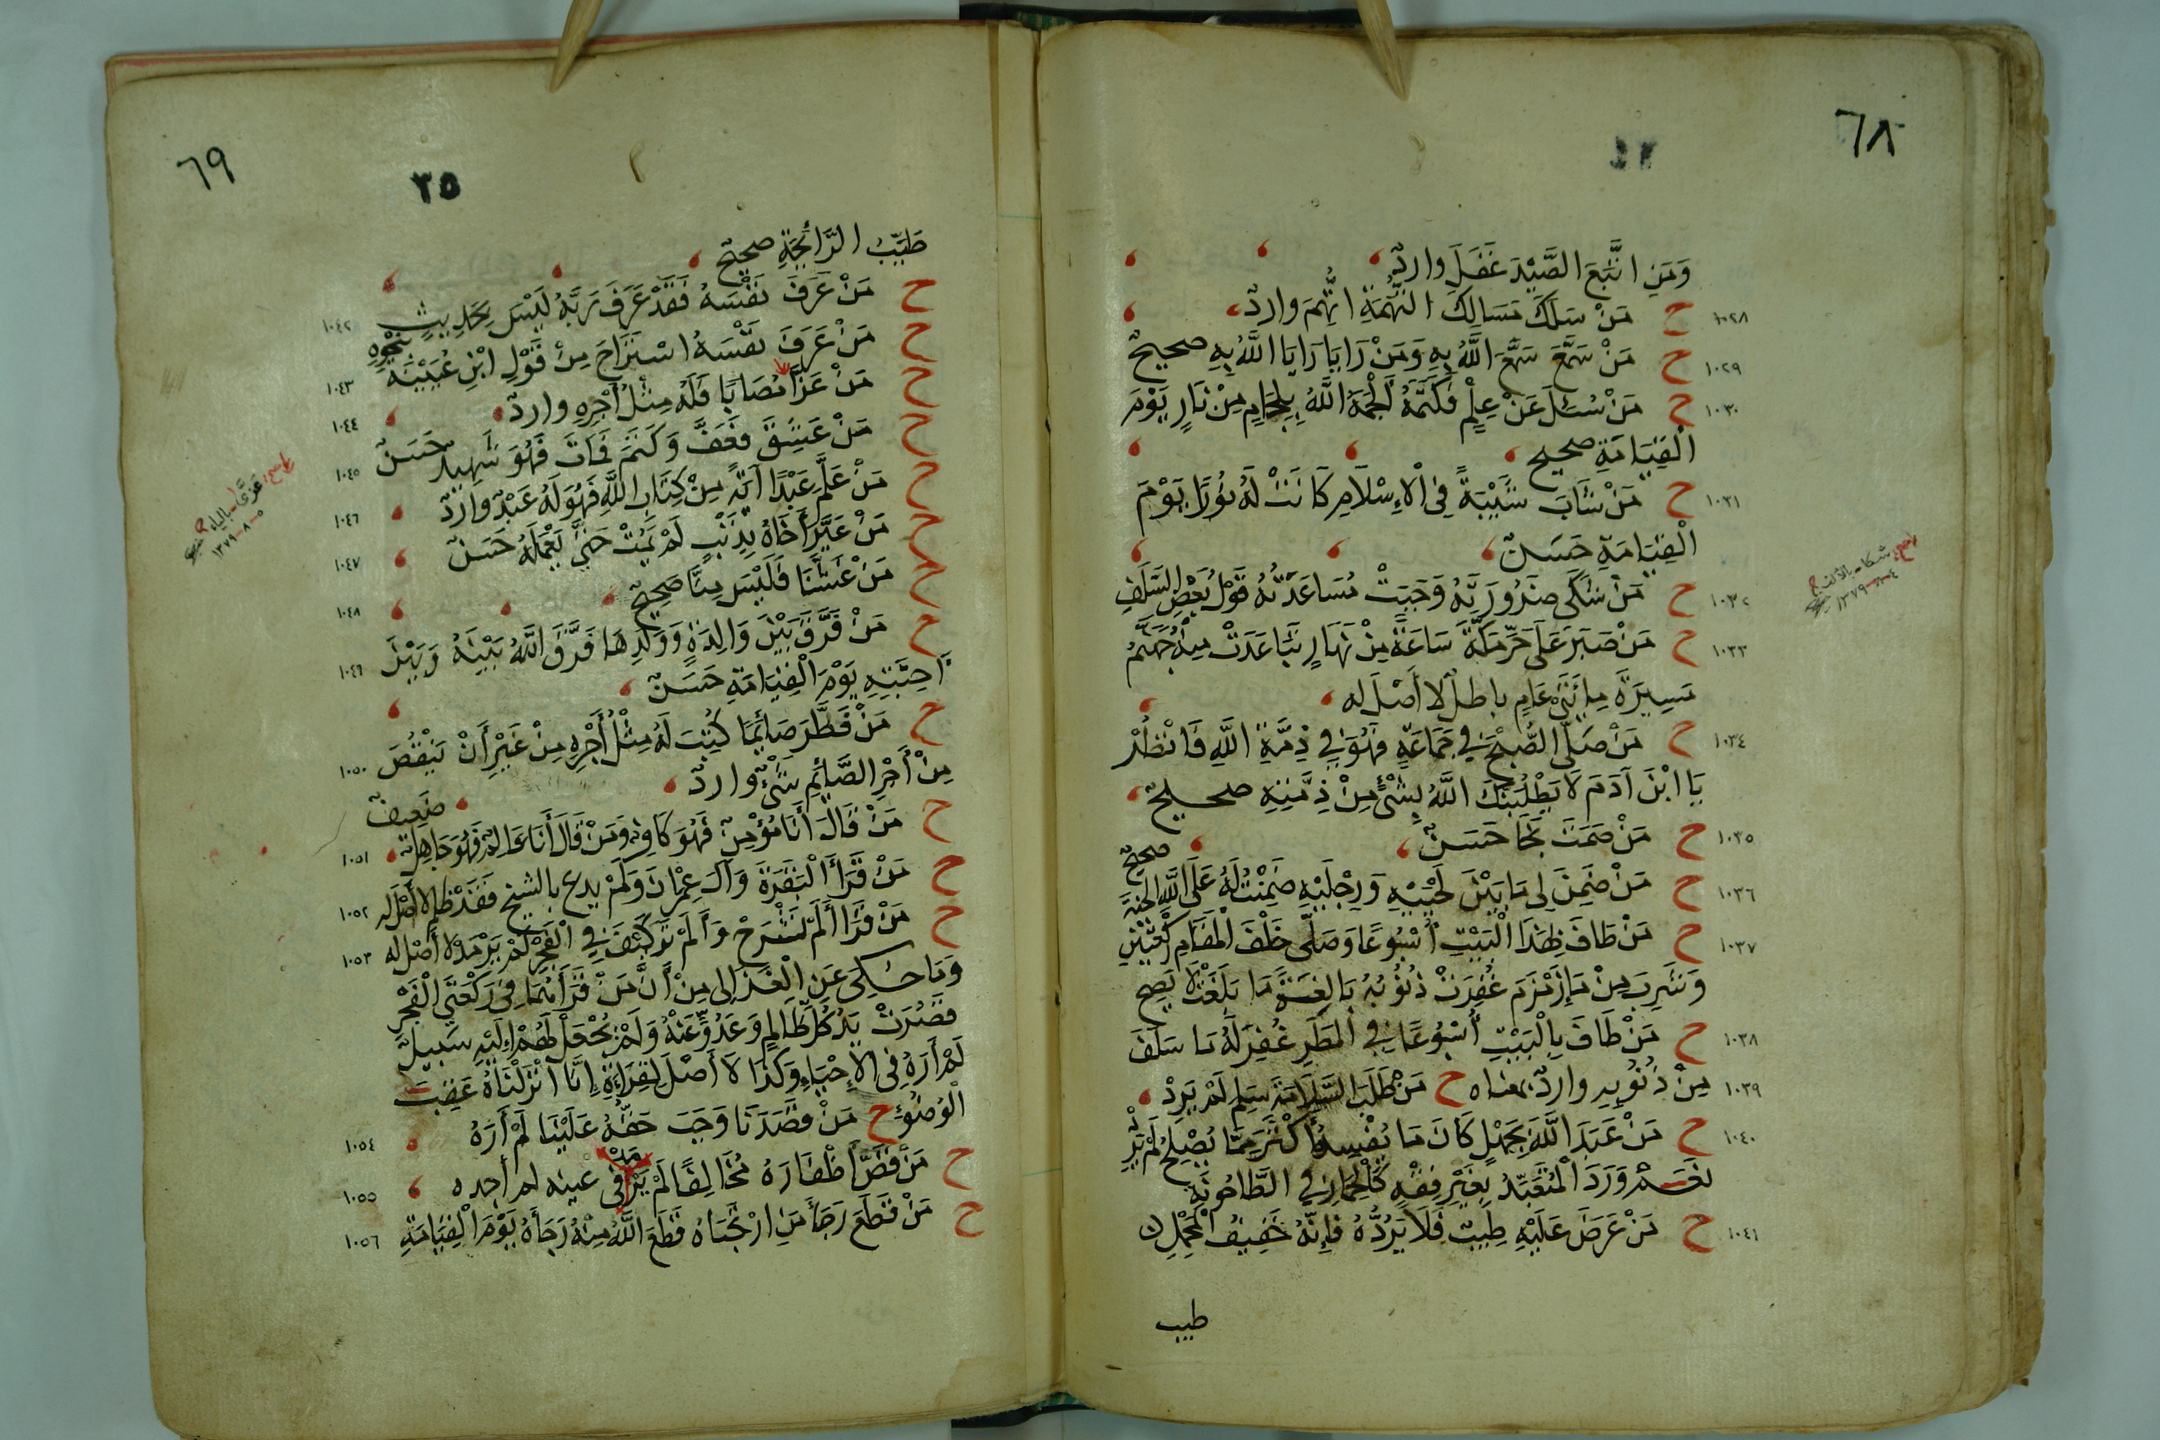 ٦٨
٣٤
وَمَنِ اتَّبَعَ الصَّيْدَ غَفَلَ وارد
١٠٢٨ ح مَنْ سَلَكَ مَسَالِكَ التُّهْمَةِ اتُّهِمَ وارد
١٠٢٩ ح مَنْ سَمَّعَ سَمَّعَ اللَّهُ بِهِ وَمَنْ رَايَا رَايَا اللَّهُ بِهِ صحيح
١٠٣٠ ح مَنْ سُئِلَ عَنْ عِلْمٍ فَكَتَمَهُ أَلْجَمَهُ اللَّهُ بِلِجَامٍ مِنْ نَارٍ يَوْمَ
الْقِيَامَةِ صحيح
١٠٣١ ح مَنْ شَابَ شَيْبَةً فِي الْإِسْلَامِ كَانَتْ لَهُ نُورًا يَوْمَ
الْقِيَامَةِ حَسَن
١٠٣٢ ح مَنْ شَكَى ضَرُورَتَهُ وَجَبَتْ مُسَاعَدَتُهُ قَوْلُ بَعْضِ السَّلَفِ
١٠٣٣ ح مَنْ صَبَرَ عَلَى حَرِّ مَكَّةَ سَاعَةً مِنْ نَهَارٍ تَبَاعَدَتْ مِنْهُ جَهَنَّمُ
مَسِيرَةَ مِائَتَيْ عَامٍ باطل لا أَصْلَ له
١٠٣٤ ح مَنْ صَلَّى الصُّبْحَ فِي جَمَاعَةٍ فَهُوَ فِي ذِمَّةِ اللَّهِ فَانْظُرْ
يَا ابْنَ آدَمَ لَا يَطْلُبَنَّكَ اللَّهُ بِشَيْءٍ مِنْ ذِمَّتِهِ صحيح
١٠٣٥ ح مَنْ صَمَتَ نَجَا حَسَن
١٠٣٦ ح مَنْ ضَمِنَ لِي مَا بَيْنَ لَحْيَيْهِ وَرِجْلَيْهِ ضَمِنْتُ لَهُ عَلَى اللَّهِ الجنة صحيح
١٠٣٧ ح مَنْ طَافَ بِهَذَا الْبَيْتِ أُسْبُوعًا وَصَلَّى خَلْفَ الْمَقَامِ رَكْعَتَيْنِ
وَشَرِبَ مِنْ مَاءِ زَمْزَمَ غُفِرَتْ ذُنُوبُهُ بَالِغَةً مَا بَلَغَتْ لَا يَصِح
١٠٣٨ ح مَنْ طَافَ بِالْبَيْتِ أُسْبُوعًا فِي الْمَطَرِ غُفِرَ لَهُ مَا سَلَفَ
١٠٣٩ مِنْ ذُنُوبِهِ وارد بمعناه ح مَنْ طَلَبَ السَّلَامَةَ سَلِمَ لَمْ يَرِدْ
١٠٤٠ ح مَنْ عَبَدَ اللَّهَ بِجَهْلٍ كَانَ مَا يُفْسِدُ أَكْثَرَ مِمَّا يُصْلِحُ لَمْ يَرِدْ
نَعَمْ وَرَدَ الْمُتَعَبِّدُ بِغَيْرِ فِقْهٍ كَالْحِمَارِ فِي الطَّاحُونَةِ
١٠٤١ ح مَنْ عَرَضَ عَلَيْهِ طِيبٌ فَلَا يَرُدُّهُ فَإِنَّهُ خَفِيفُ الْمَحْمِلِ
طيب
شكا بالألف
١٣٧٩
٦٩
٣٥
طَيِّبُ الرَّائِحَةِ صحيح
١٠٤٢ ح مَنْ عَرَفَ نَفْسَهُ فَقَدْ عَرَفَ رَبَّهُ لَيْسَ بِحَدِيثٍ
١٠٤٣ ح مَنْ عَرَفَ نَفْسَهُ اسْتَرَاحَ مِنْ قَوْلِ ابْنِ عُيَيْنَةَ بنحوه
١٠٤٤ ح مَنْ عَزَّا مُصَابًا فَلَهُ مِثْلُ أَجْرِهِ وارد
١٠٤٥ ح مَنْ عَشِقَ فَعَفَّ وَكَتَمَ فَمَاتَ فَهُوَ شَهِيدٌ حَسَن
١٠٤٦ ح مَنْ عَلَّمَ عَبْدًا آيَةً مِنْ كِتَابِ اللَّهِ فَهُوَ لَهُ عَبْدٌ وارد
١٠٤٧ ح مَنْ عَيَّرَ أَخَاهُ بِذَنْبٍ لَمْ يَمُتْ حَتَّى يَعْمَلَهُ حَسَن
١٠٤٨ ح مَنْ غَشَّنَا فَلَيْسَ مِنَّا صَحِيح
١٠٤٩ ح مَنْ فَرَّقَ بَيْنَ وَالِدَةٍ وَوَلَدِهَا فَرَّقَ اللَّهُ بَيْنَهُ وَبَيْنَ
أَحِبَّتِهِ يَوْمَ الْقِيَامَةِ حَسَن
١٠٥٠ ح مَنْ فَطَّرَ صَائِمًا كُتِبَ لَهُ مِثْلُ أَجْرِهِ مِنْ غَيْرِ أَنْ يَنْقُصَ
مِنْ أَجْرِ الصَّائِمِ شَيْءٌ وارد
١٠٥١ ح مَنْ قَالَ أَنَا مُؤْمِنٌ فَهُوَ كَافِرٌ وَمَنْ قَالَ أَنَا عَالِمٌ فَهُوَ جَاهِلٌ ضَعِيف
١٠٥٢ ح مَنْ قَرَأَ الْبَقَرَةَ وَآلَ عِمْرَانَ وَلَمْ يدع بالشيخ فَقَدْ ظلم لا أَصْلَ له
١٠٥٣ ح مَنْ قَرَأَ أَلَمْ نَشْرَحْ وَأَلَمْ تَرَ كَيْفَ فِي الْفَجْرِ لَمْ يَرْمَدْ لا أَصْلَ له
وَمَا حُكِيَ عَنِ الْغَزَالِي مِنْ أَنَّ مَنْ قَرَأَهُمَا فِي رَكْعَتَيِ الْفَجْرِ
قَصُرَتْ يَدُ كُلِّ ظَالِمٍ وَعَدُوٍّ عَنْهُ وَلَمْ يُجْعَلْ لَهُمْ إِلَيْهِ سَبِيلٌ
لَمْ أَرَهُ فِي الْإِحْيَاءِ وَكَذَا لَا أَصْلَ لِقِرَاءَةِ إِنَّا أَنْزَلْنَاهُ عَقِبَ
١٠٥٤ الْوُضُوءِ ح مَنْ قَصَدَنَا وَجَبَ حَقُّهُ عَلَيْنَا لَمْ أَرَهُ
١٠٥٥ ح مَنْ قَصَّ أَظْفَارَهُ مُخَالِفًا لَمْ يَرَ فِي عينه رمدا لم أجده
١٠٥٦ ح مَنْ قَطَعَ رَجَاءَ مَنِ ارْتَجَاهُ قَطَعَ اللَّهُ مِنْهُ رَجَاءَهُ يَوْمَ الْقِيَامَةِ
عَزَّى بالياء
١٣٧٩-٨-٥